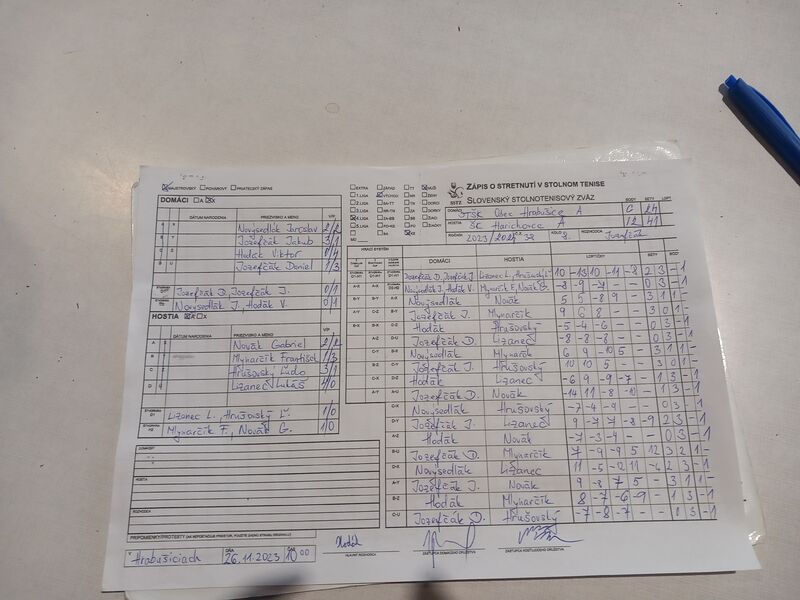 MAJSTROVSKÝ POHÁROVÝ PRIATEĽSKÝ ZÁPAS
DOMÁCI A X
DÁTUM NARODENIA PRIEZVISKO A MENO V/P
Novysedlák Jaroslav 2/2
Jozefčák Jakub 3/1
Hodák Viktor 0/4
Jozefčák Daniel 1/3
Jozefčák D., Jozefčák J. 0/1
Novysedlák J., Hodák V. 0/1
HOSTIA X
DÁTUM NARODENIA PRIEZVISKO A MENO V/P
Novák Gabriel 2/2
Mlynarčík František 1/3
Hrušovský Ľudo 3/1
Lizanec Lukáš 4/0
Lizanec L., Hrušovský Ľ. 1/0
Mlynarčík F., Novák G. 1/0
DOMÁCI
HOSTIA
ROZHODCA
PRIPOMIENKY/PROTESTY
V Hrabušiciach DŇA 26.11.2023 ČAS 10 00
HLAVNÝ ROZHODCA
ZÁSTUPCA DOMÁCEHO DRUŽSTVA
ZÁSTUPCA HOSŤUJÚCEHO DRUŽSTVA
EXTRA
1.LIGA
2.LIGA
3.LIGA
4.LIGA
5.LIGA
SSTZ
ZÁPIS O STRETNUTÍ V STOLNOM TENISE
SLOVENSKÝ STOLNOTENISOVÝ ZVÄZ
BODY SETY LOPT.
DOMÁCI OTSK Obec Hrabušice A 6 24
HOSTIA ŠK Harichovce A 12 41
ROČNÍK 2023/2024 KOLO 8. ROZHODCA Jozefčák
HRACÍ SYSTÉM
DOMÁCI HOSTIA LOPTIČKY SETY BODY
Jozefčák D., Jozefčák J. Lizanec L., Hrušovský Ľ. 10 -13 10 -11 -8 2 3 - 1
Novysedlák J., Hodák V. Mlynarčík F., Novák G. -8 -9 - 0 3 - 1
A-X Novysedlák Novák 5 5 -8 9 - 3 1 1 -
B-Y Jozefčák J. Mlynarčík 9 6 8 - 3 0 1 -
Hodák Hrušovský -5 -4 -6 - 0 3 - 1
Jozefčák D. Lizanec -8 -8 -8 - 0 3 - 1
Novysedlák Mlynarčík 6 9 -10 5 - 3 1 1 -
Jozefčák J. Hrušovský 10 10 5 - 3 0 1 -
Hodák Lizanec -6 9 -9 -7 - 1 3 - 1
Jozefčák D. Novák -14 11 -8 -10 - 1 3 - 1
C-X Novysedlák Hrušovský -7 -4 -9 - 0 3 - 1
D-Y Jozefčák J. Lizanec 9 -7 7 -8 -9 2 3 - 1
A-Z Hodák Novák -7 -3 -9 - 0 3 - 1
B-U Jozefčák D. Mlynarčík 7 -9 -9 5 12 3 2 1 -
D-X Novysedlák Lizanec 11 -5 -12 11 -4 2 3 - 1
A-Y Jozefčák J. Novák 9 -8 7 5 - 3 1 1 -
B-Z Hodák Mlynarčík 8 -7 -6 -9 - 1 3 - 1
C-U Jozefčák D. Hrušovský -7 -8 -7 - 0 3 - 1